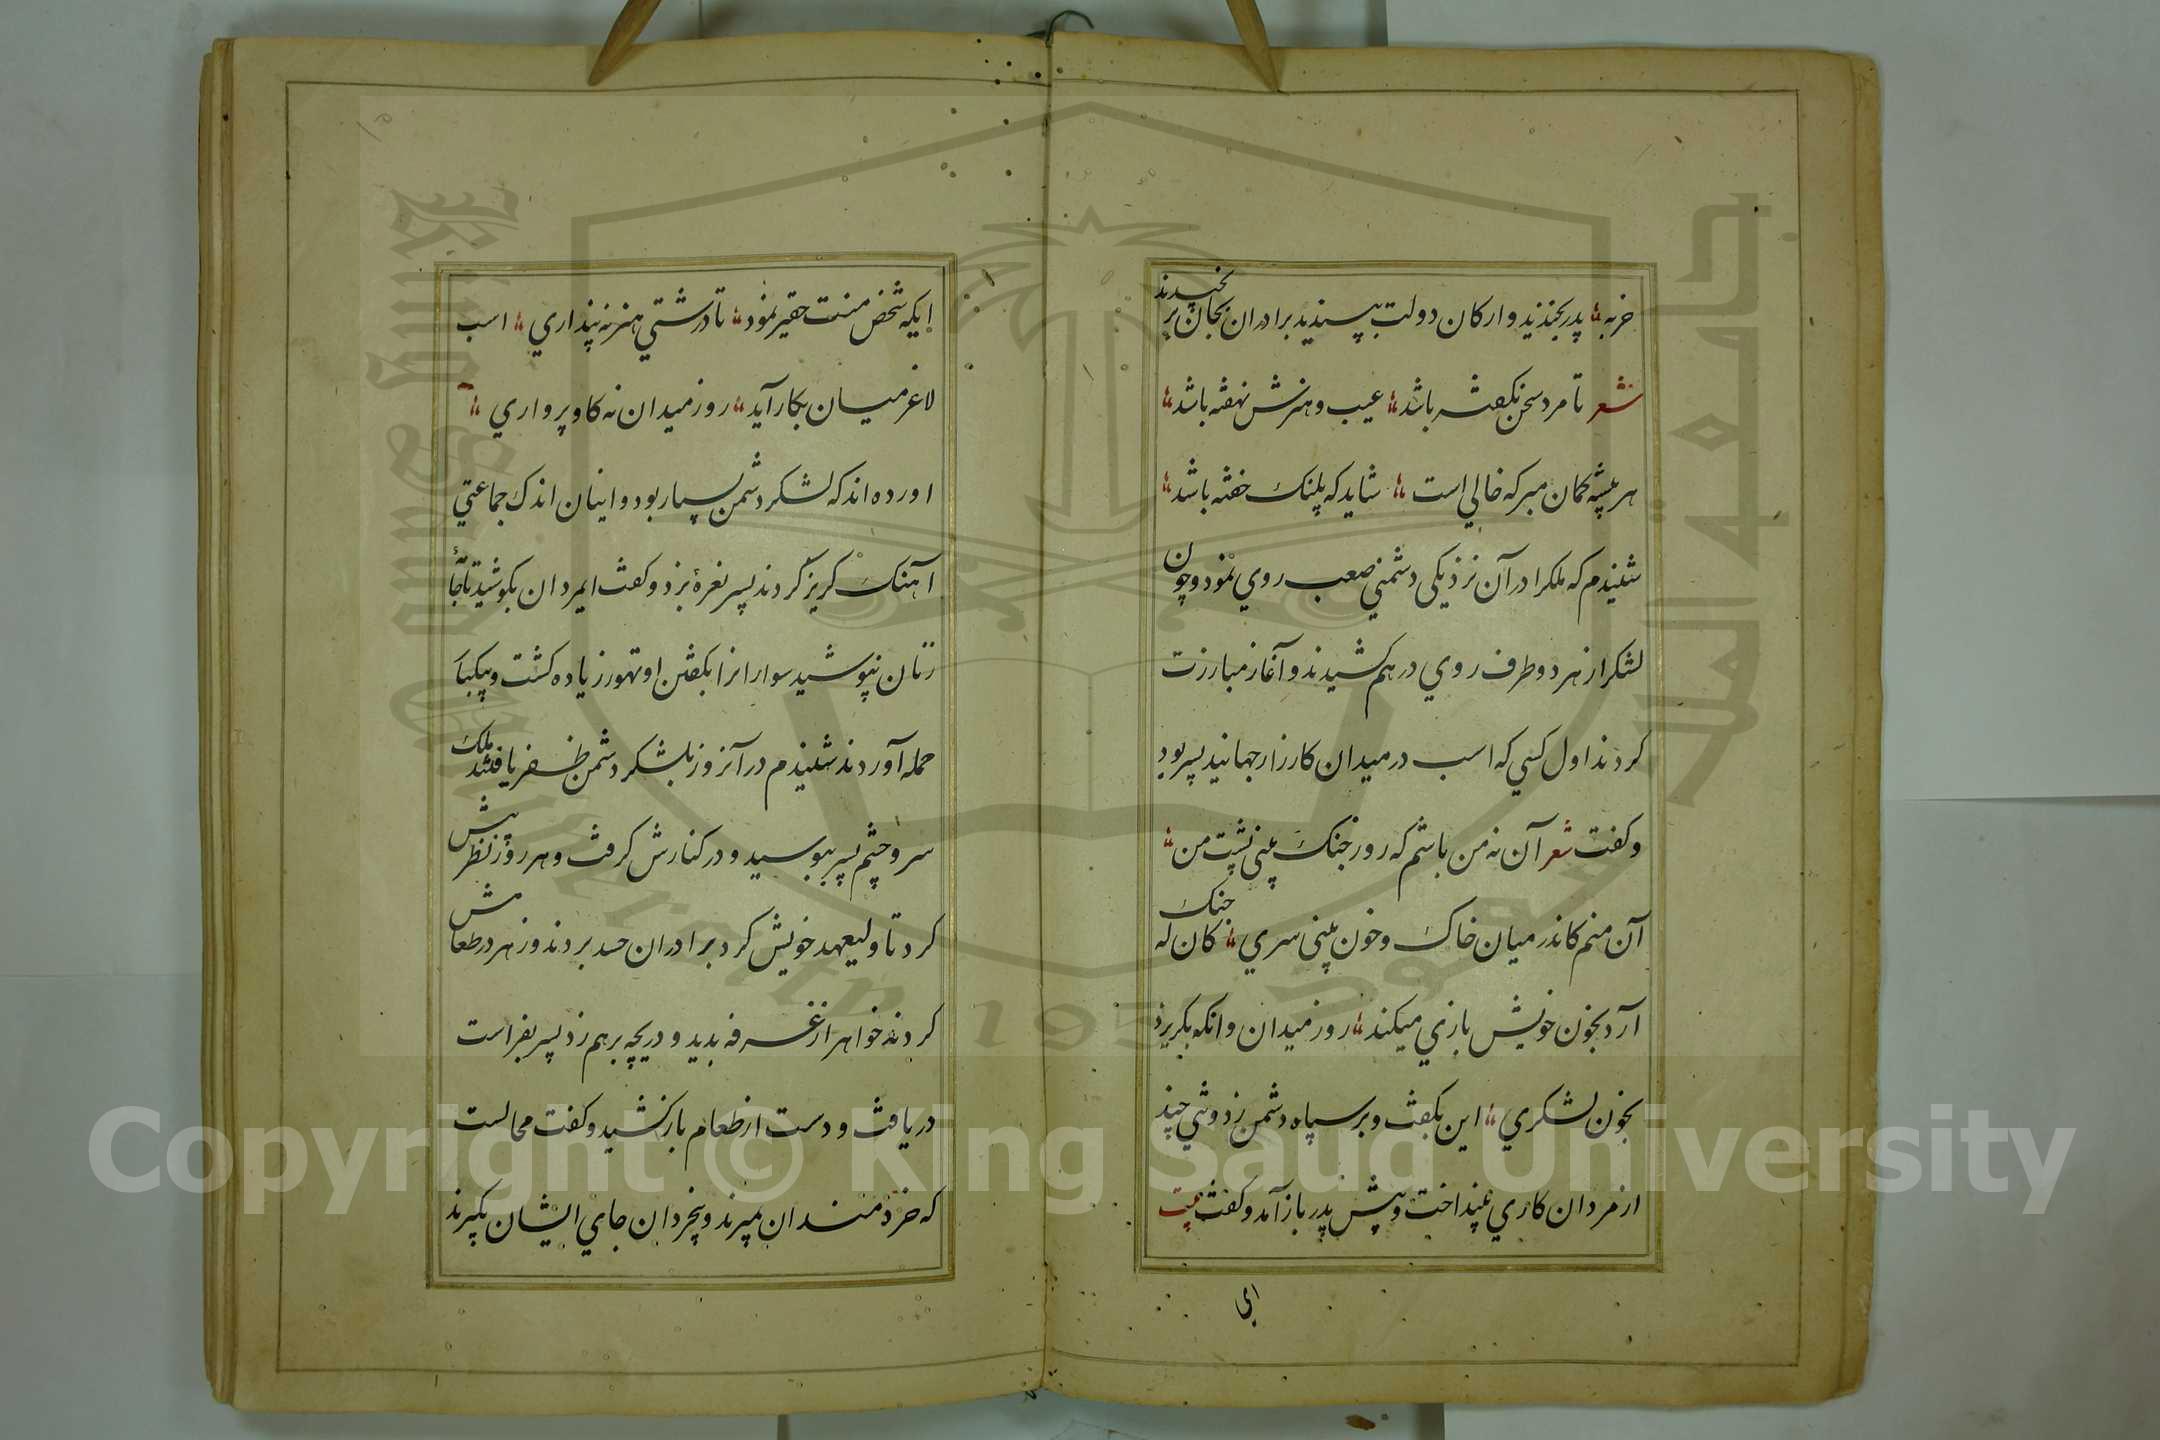 خر به پدر بخندید و ارکان دولت بپسندید برادران بجان برنجیدند
شعر تا مرد سخن نکفته باشد عیب و هنرش نهفته باشد
هر بیشه کمان مبر که خالي است شاید که پلنک خفته باشد
شنیدم که ملکرا در آن نزدیکی دشمني صعب روي نمود و چون
لشکر از هر دو طرف روي در هم کشیدند و آغاز مبارزت
کردند اول کسي که اسب در میدان کارزار جهانید پسر بود
و کفت شعر آن نه من باشم که روز جنک بینی پشت من
آن منم کاندر میان خاک و خون بینی سري کان که جنک
آرد بخون خویش بازي میکند روز میدان وانکه بکریزد
بخون لشکري این بکفت و بر سپاه دشمن زد و تني چند
از مردان کاري بینداخت و پیش پدر باز آمد و کفت بیت
ای
ایکه شخص منت حقیر نمود تا درشتي هنر نه پنداري اسب
لاغر میان بکار آید روز میدان نه کاو پرواري
اورده اند که لشکر دشمن بسیار بود و اینان اندک جماعتي
آهنک کریز کردند پسر نعرهٔ بزد و کفت ایمردان بکوشید تا جامهٔ
زنان نپوشید سوارانرا بکفتن او تهور زیاده کشت و بیکبار
حمله آوردند شنیدم در آنروز بلشکر دشمن ظفر یافتند ملک
سر و چشم پسر ببوسید و در کنارش کرفت و هر روز نظر بیش
کرد تا ولیعهد خویش کرد برادران حسد بردند و زهر در طعامش
کردند خواهر از غرفه بدید و دریچه بر هم زد پسر بفراست
دریافت و دست از طعام باز کشید و کفت محالست
که خردمندان بمیرند و بیخردان جاي ایشان بکیرند
Copyright © King Saud University
King Saud University
جامعة الملك سعود
1957